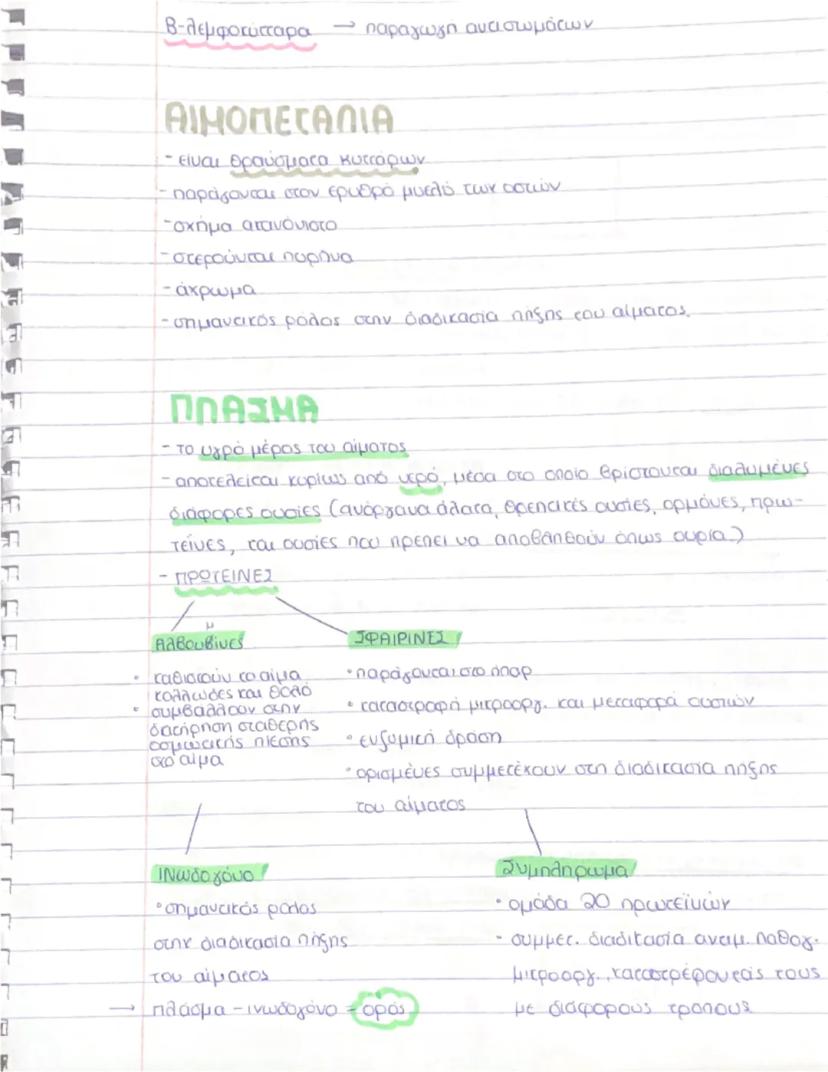 Β-λεμφοκύτταρα → παραγωγή αντισωμάτων
ΑΙΜΟΠΕΤΑΛΙΑ
- είναι θραύσματα κυττάρων
- παράγονται στον ερυθρό μυελό των οστών
- σχήμα ακανόνιστο
- στερούνται πυρήνα
- άχρωμα
- σημαντικός ρόλος στην διαδικασία πήξης του αίματος.
ΠΛΑΣΜΑ
- το υγρό μέρος του αίματος
- αποτελείται κυρίως από νερό, μέσα στο οποίο βρίσκονται διαλυμένες
διάφορες ουσίες (ανόργανα άλατα, θρεπτικές ουσίες, ορμόνες, πρω-
τείνες, και ουσίες που πρέπει να αποβληθούν όπως ουρία.)
- ΠΡΩΤΕΙΝΕΣ
μ
Αλβουβίνες ΣΦΑΙΡΙΝΕΣ
• καθιστούν το αίμα
κολλώδες και θολό
• συμβάλλουν στην
διατήρηση σταθερής
οσμωτικής πίεσης
στο αίμα
• παράγονται στο ήπαρ
• καταστροφή μικροοργ. και μεταφορά ουσιών
• ενζυμική δράση
• ορισμένες συμμετέχουν στη διαδικασία πήξης
του αίματος
Ινωδογόνο
• σημαντικός ρόλος
στην διαδικασία πήξης
του αίματος
→ πλάσμα - ινωδογόνο = ορός
Συμπλήρωμα
• ομάδα 20 πρωτεϊνών
- συμμετ. διαδικασία αντιμ. παθογ.
μικροοργ., καταστρέφοντάς τους
με διάφορους τρόπους